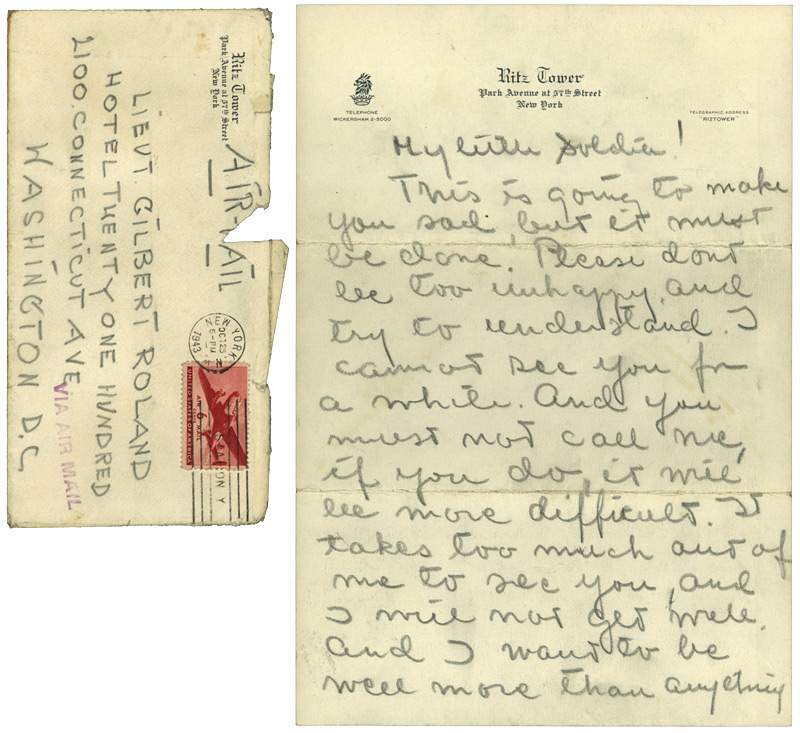 Ritz Tower
Park Avenue at 57th Street
New York
AIR-MAIL
LIEUT. GILBERT ROLAND
HOTEL TWENTY ONE HUNDRED
2100. CONNECTICUT AVE
WASHINGTON D.C.
VIA AIR MAIL
NEW YORK, N.Y.
OCT 25
6-PM
1943
UNITED STATES OF AMERICA
AIR MAIL
6¢
Ritz Tower
Park Avenue at 57th Street
New York
TELEPHONE
WICKERSHAM 2-5000
TELEGRAPHIC ADDRESS
"RIZTOWER"
My little Soldier!
This is going to make
you sad, but it must
be done. Please dont
be too unhappy, and
try to understand. I
cannot see you for
a while. And you
must not call me,
if you do, it will
be more difficult. It
takes too much out of
me to see you, and
I will not get well.
And I want to be
well more than anything